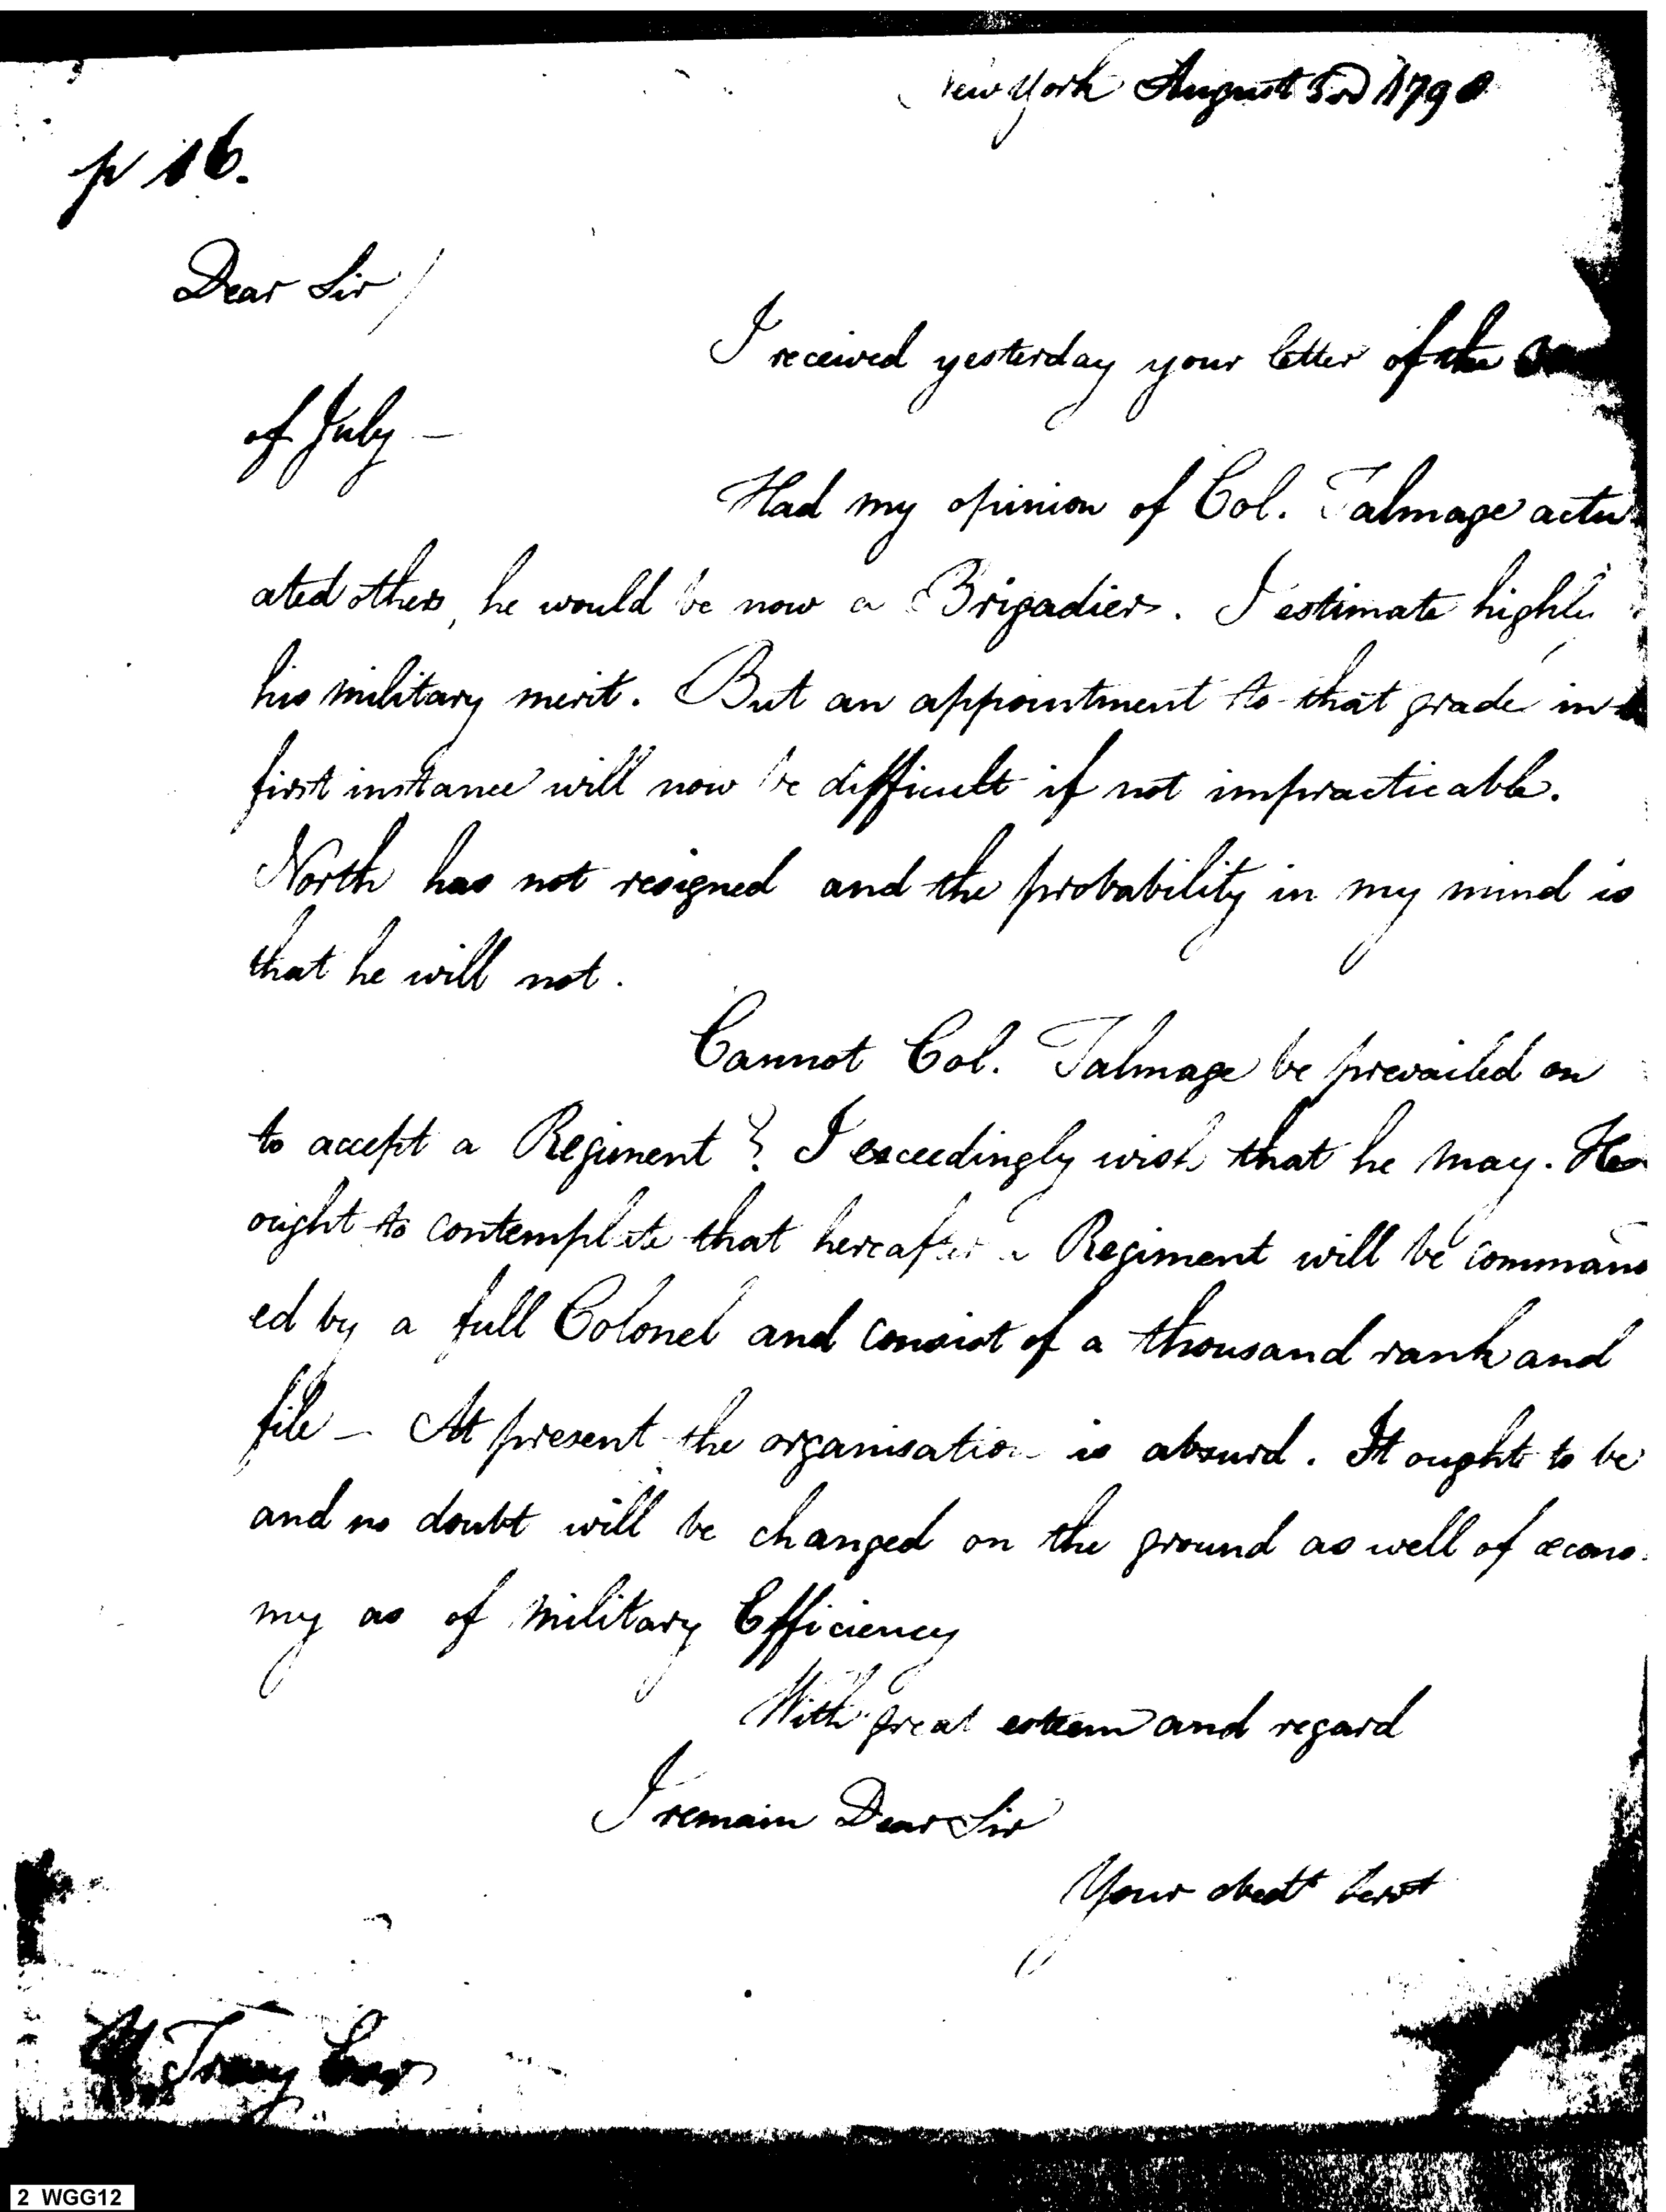 New York August 3rd 1790
p 16.
Dear Sir/
I received yesterday your letter of the
of July —
Had my opinion of Col. Talmage actu
ated others, he would be now a Brigadier. I estimate highly
his military merit. But an appointment to that grade in
first instance will now be difficult if not impracticable.
North has not resigned and the probability in my mind is
that he will not.
Cannot Col. Talmage be prevailed on
to accept a Regiment? I exceedingly wish that he may. He
ought to contemplate that hereafter a Regiment will be command
ed by a full Colonel and consist of a thousand rank and
file — At present the organisation is absurd. It ought to be
and no doubt will be changed on the ground as well of œcono
my as of military Efficiency
With great esteem and regard
I remain Dear Sir
Your obedt Servt
Tracy Esqr
2 WGG12